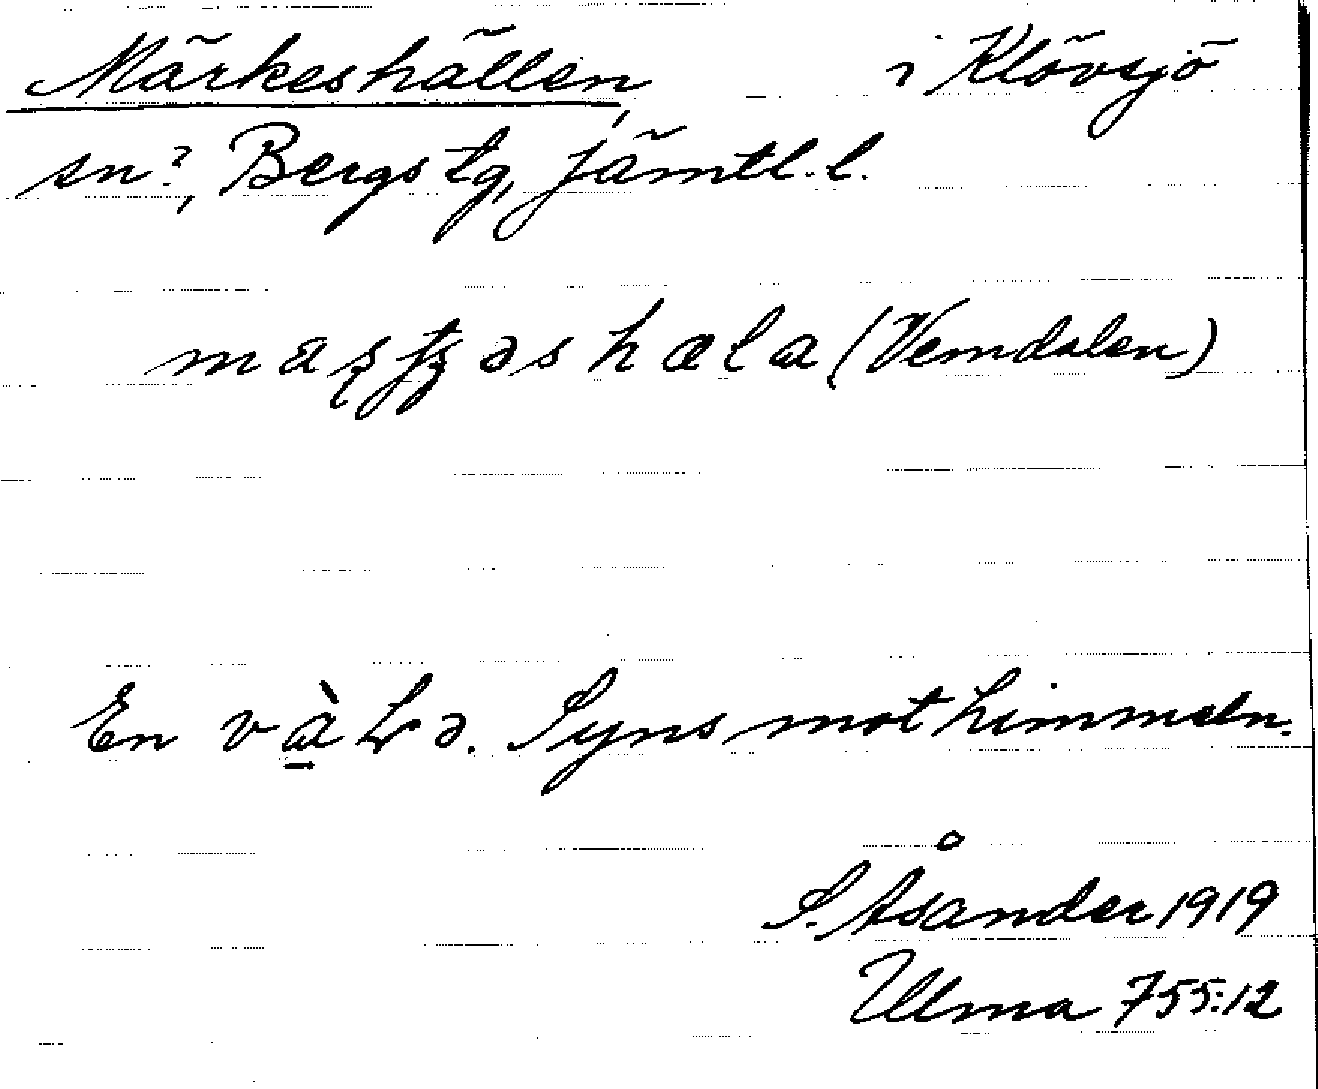 Märkeshällen, i Klövsjö
sn?, Bergs tg, Jämtl. l.
(Vemdalen)
En Syns mot himmeln.
S. Åsander 1919
Ulma 755:12